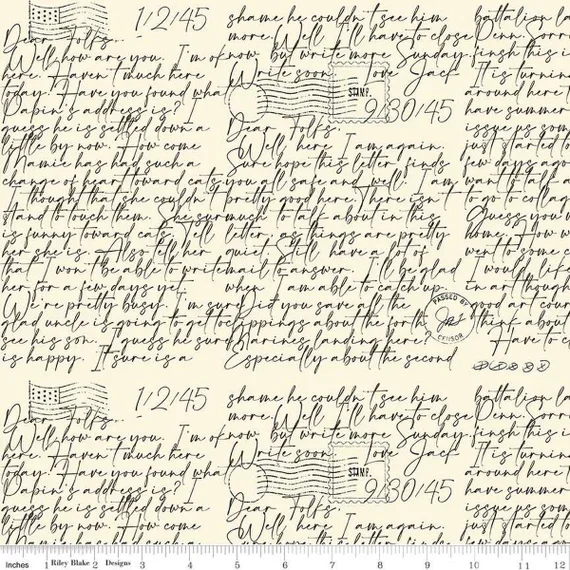 1/2/45
Dear Folks.
Well how are you. I'm ok
here. Haven't much here
today. Have you found wha
Papin's address is? I
guess he is settled down a
little by now. How come
Mamie has had such a
change of heart toward cats
I thought that she couldn't
stand to touch them. She sur
is funny toward cats. Tell
her she is. Also tell her
that I won't be able to write
her for a few days yet.
We're pretty busy. I'm sur
glad uncle is going to get to
see his son. I guess he sure
is happy. It sure is a
shame he couldn't see him
more. Well I'll have to close
now but write more Sunday.
Write soon. Love Jack
STAMP.
9/30/45
Dear Folks.
Well here I am again.
Sure hope this letter finds
you all safe and well. I am
pretty good here. There isn't
much to talk about in this
letter, as things are pretty
quiet. Still have a lot of
mail to answer. I'll be glad
when I am able to catch up.
Did you save all the
clippings about the forth
Marines landing here?
Especially about the second
PASSED BY
CENSOR
battalion la
Penn. Sorr
finsh this i
It is turnin
around here t
have summer
issue us som
just started to
few days ago
want to talk a
to go to collag
Guess you w
home. How w
went to some c
I would life
in art though
good art cour
think about
Have to c
1/2/45
Dear Folks.
Well how are you. I'm ok
here. Haven't much here
today. Have you found wha
Papin's address is? I
guess he is settled down a
little by now. How come
shame he couldn't see him
more. Well I'll have to close
now but write more Sunday.
Write soon. Love Jack
STAMP.
9/30/45
Dear Folks.
Well here I am again.
battalion la
Penn. Sorr
finsh this i
It is turnin
around here t
have summer
issue us som
just started to
Inches 1 Riley Blake 2 Designs 3 4 5 6 7 8 9 10 11 12